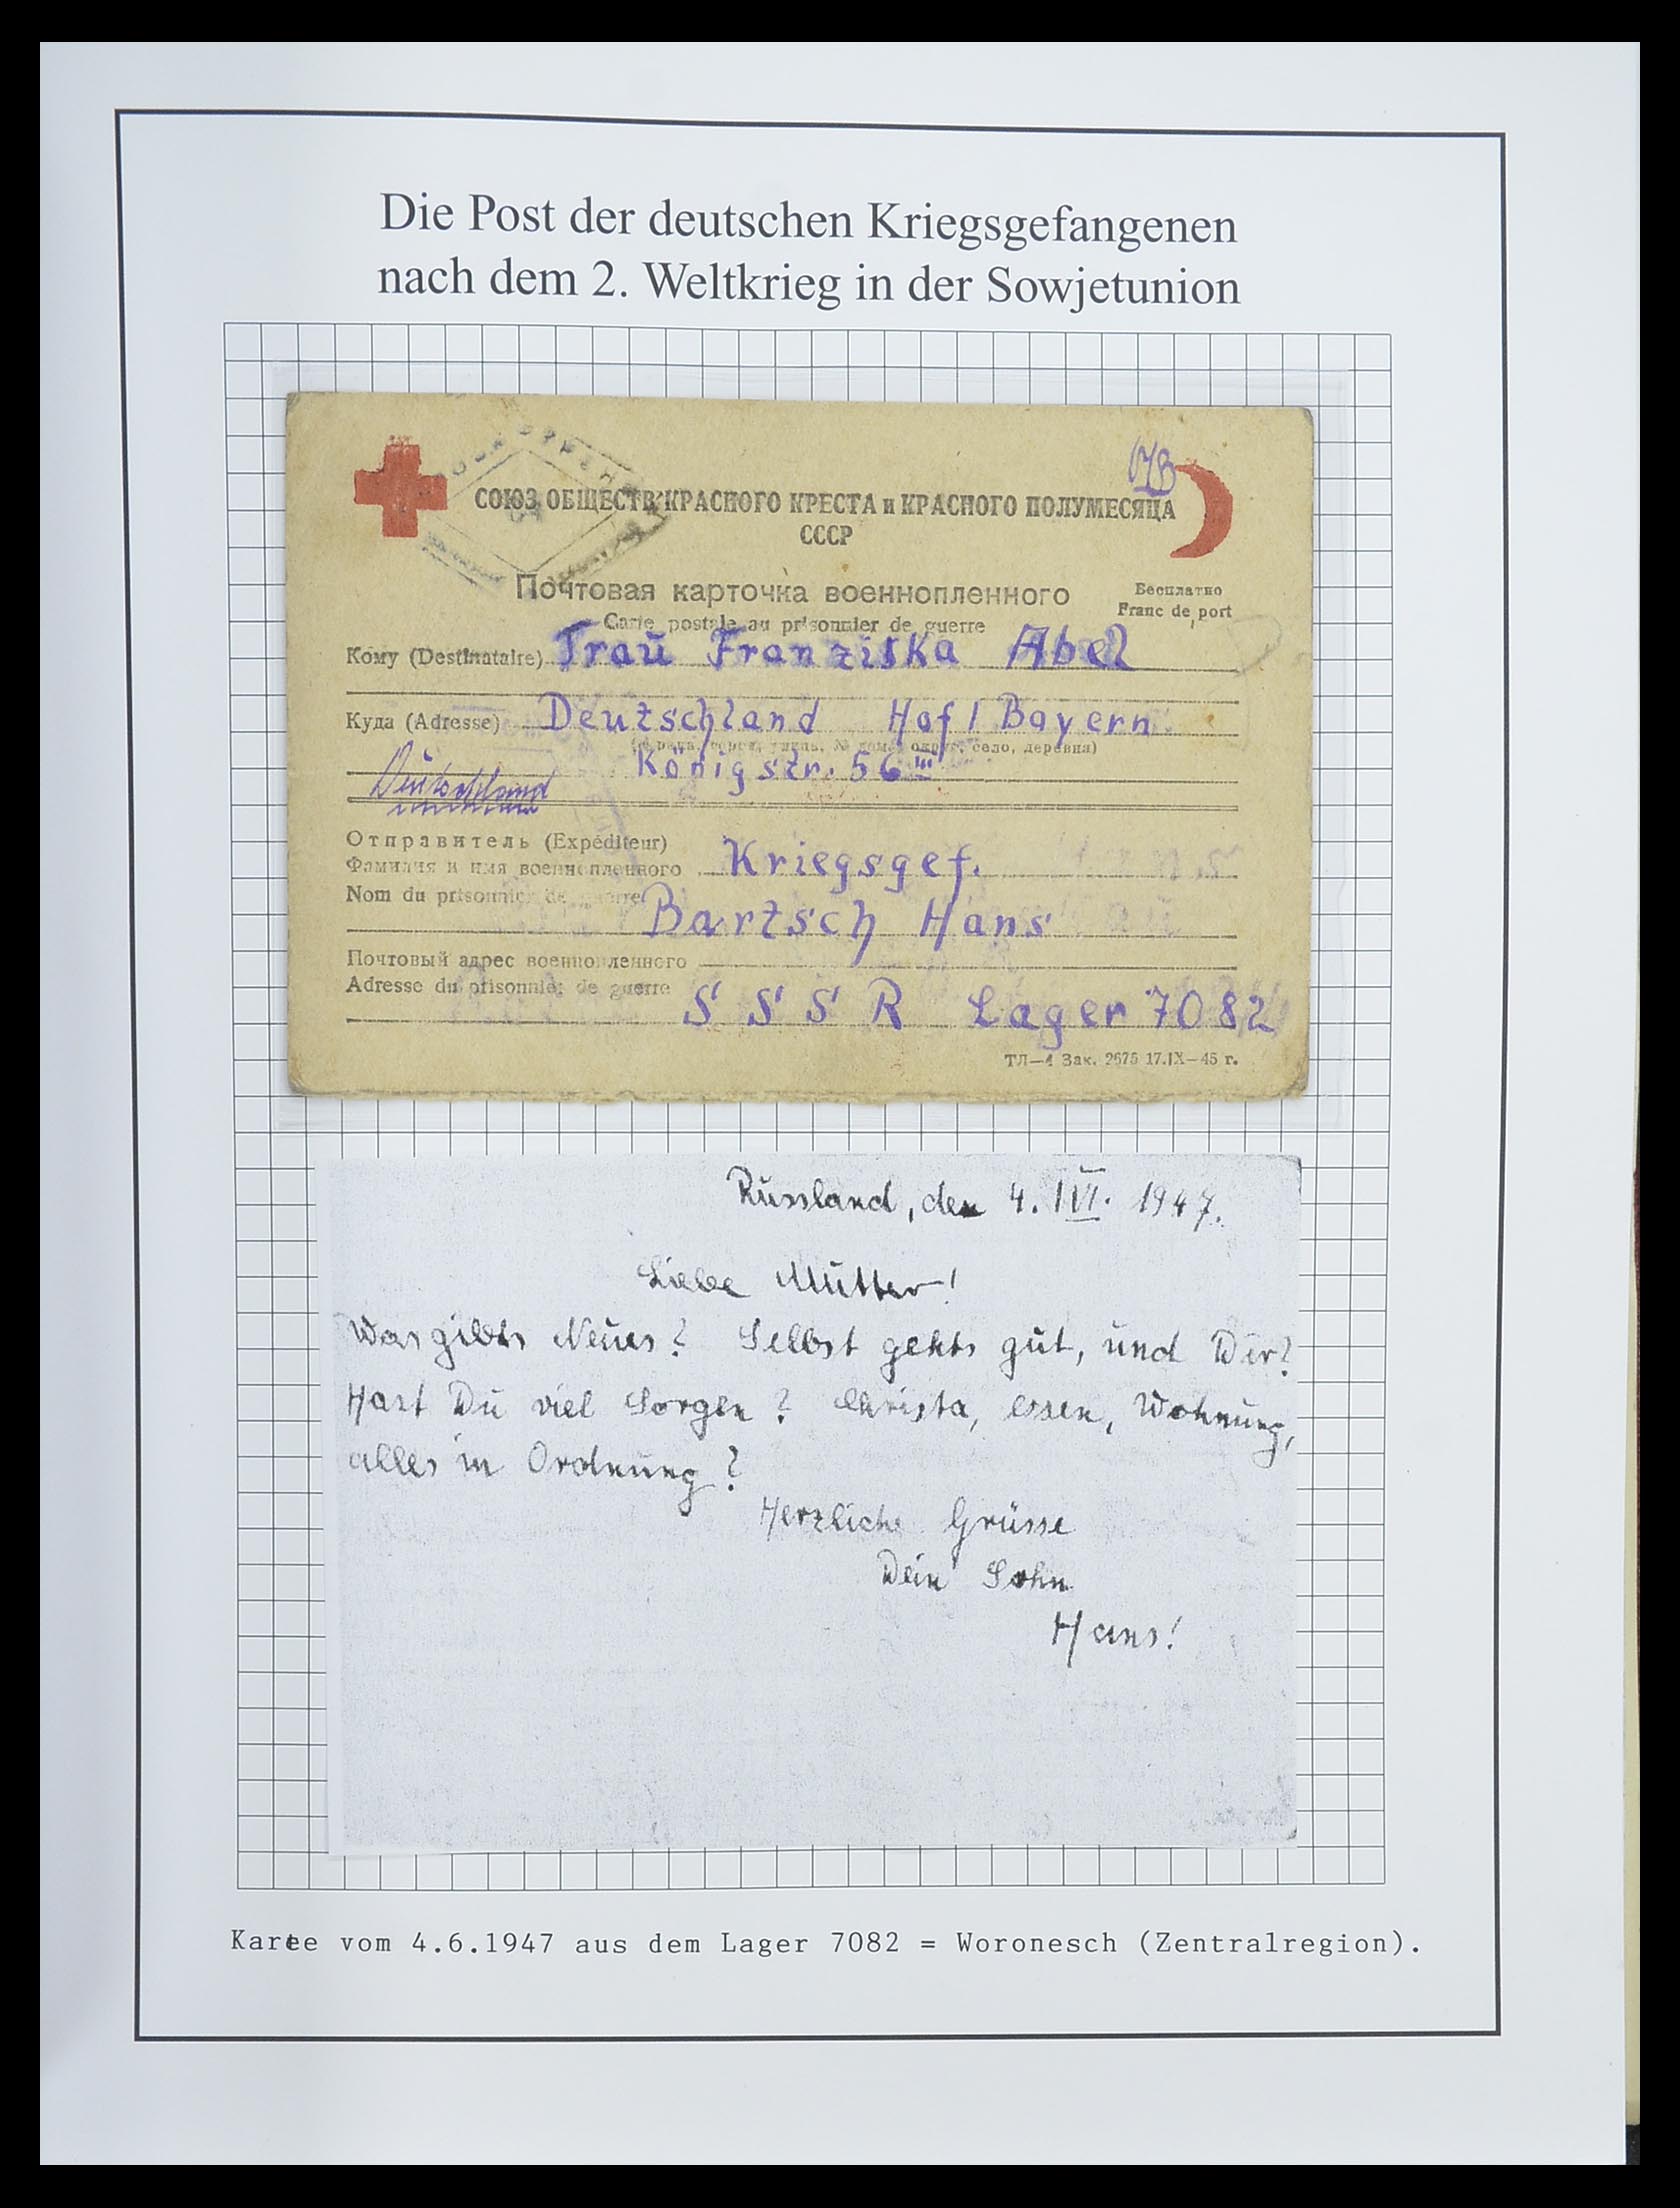 Die Post der deutschen Kriegsgefangenen
nach dem 2. Weltkrieg in der Sowjetunion
СОЮЗ ОБЩЕСТВ КРАСНОГО КРЕСТА и КРАСНОГО ПОЛУМЕСЯЦА
СССР
Почтовая карточка военнопленного
Бесплатно
Franc de port
Carte postale au prisonnier de guerre
Кому (Destinataire) Frau Franziska Abel
Куда (Adresse) Deutschland Hof / Bayern
село, деревня)
Königstr. 56 III
Deutschland
Отправитель (Expéditeur)
Фамилия и имя военнопленного Kriegsgef.
Nom du prisonnier de guerre Bartsch Hans
Почтовый адрес военнопленного
Adresse du prisonnier de guerre S S S R Lager 7082
ТЛ—4 Зак. 2675 17.IX—45 г.
Russland, den 4. VI. 1947.
Liebe Mutter!
Was gibts Neues? Selbst gehts gut, und Dir?
Hast Du viel Sorgen? Christa, essen, Wohnung,
alles in Ordnung?
Herzliche Grüsse
Dein Sohn
Hans!
Karte vom 4.6.1947 aus dem Lager 7082 = Woronesch (Zentralregion).